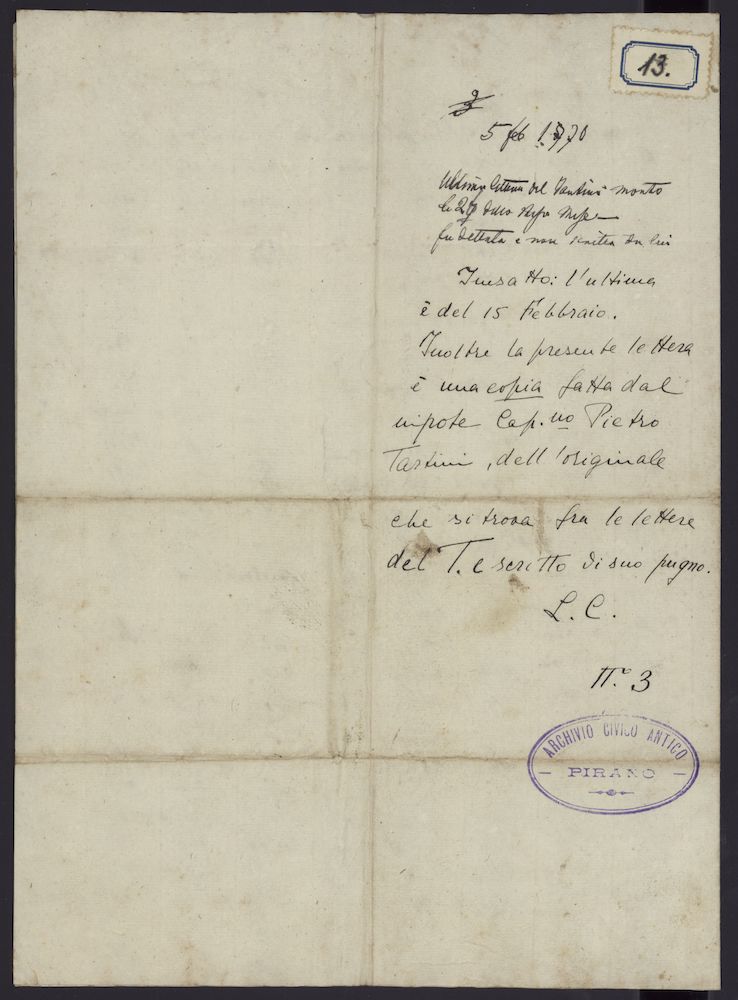 13.
3
5 feb 1770
Ultima lettera del Tartini morto
li 26 dello stesso Mese
fu dettata e non scritta da lui
Inesatto: l'ultima
è del 15 Febbraio.
Inoltre la presente lettera
è una copia fatta dal
nipote Cap.no Pietro
Tartini, dell'originale
che si trova fra le lettere
del T. e scritto di suo pugno.
L. C.
N.° 3
ARCHIVIO CIVICO ANTICO
PIRANO